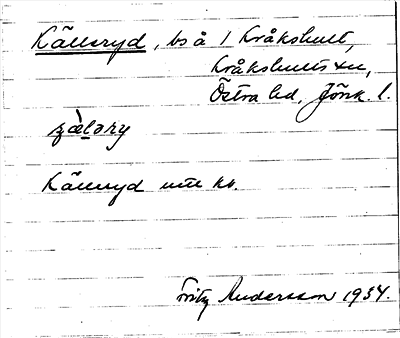 Källeryd, bs å 1 Kråkshult,
Kråkshults sn,
Östra hd, Jönk. l.
Källeryd utt kb.
Fritz Andersson 1934.